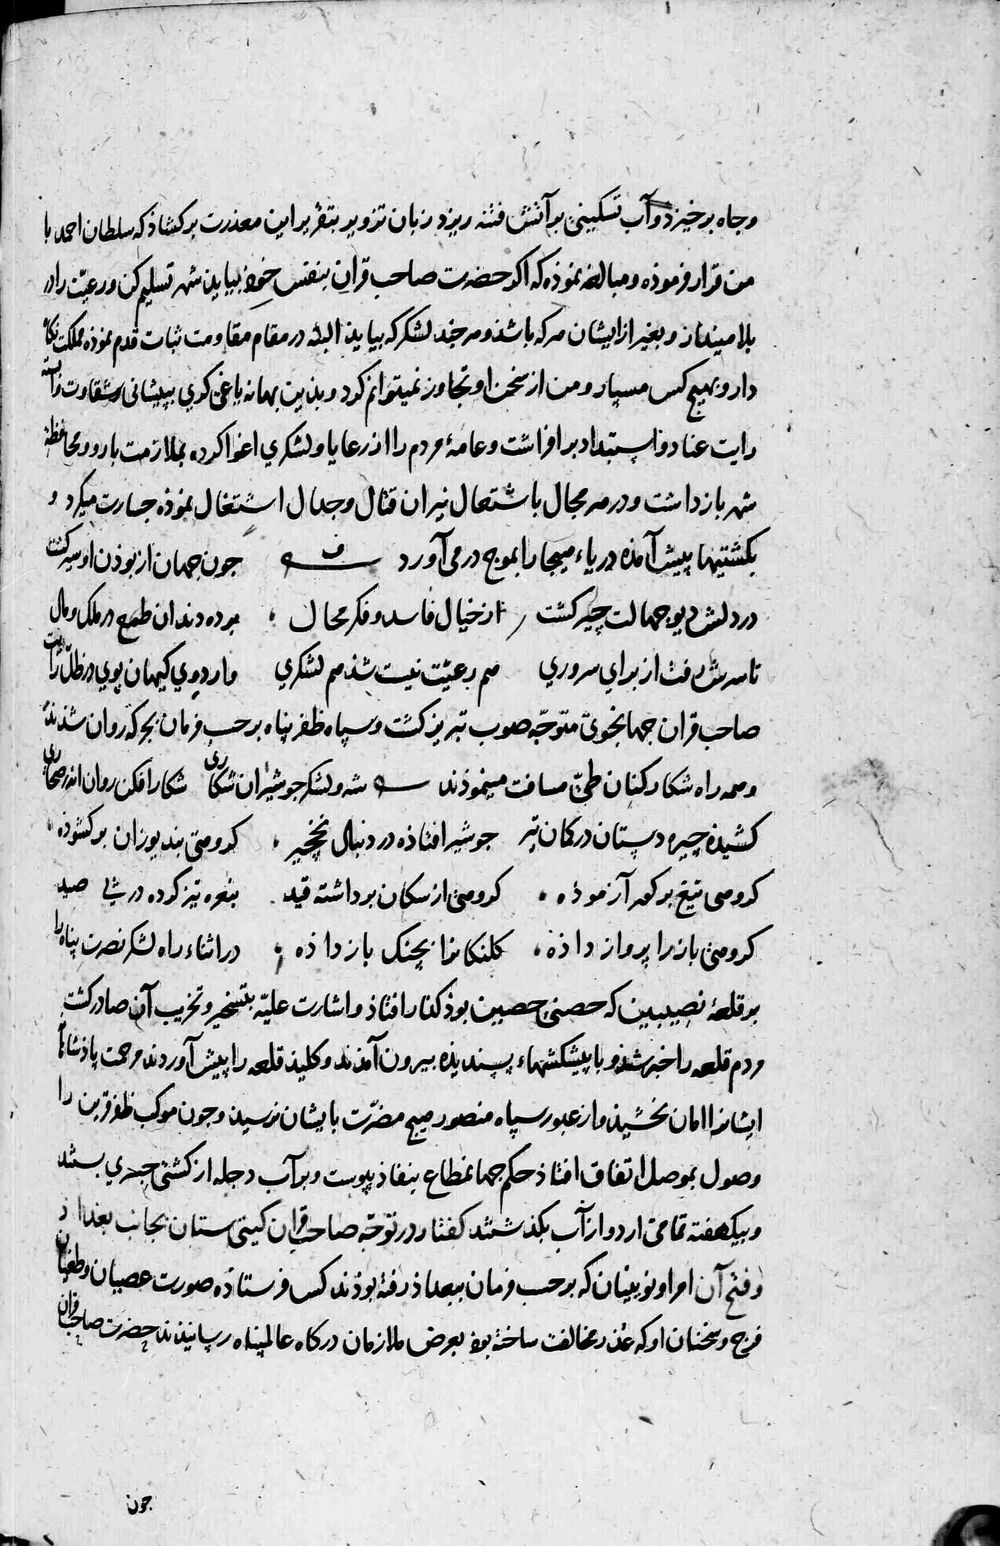 وجاه برخیزد و آب تسکینی بر آتش فتنه ریزد زبان تزویر بتقریر این معذرت برکشاذ که سلطان احمد با
من قرار فرموذه و مبالغه نموذه که اکر حضرت صاحب قران بنفس خوذ بیاید شهر تسلیم کن و رعیّت را در
بلا مینداز و بغیر از ایشان هرکه باشذ و هرچند لشکر که بیاید البته در مقام مقاومت ثبات قدم نموذه مملکت نکاه
دار و بهیچ کس مسپار و من از سخن او تجاوز نمیتوانم کرد و بذین بهانه یاغی کری بپیشانی شقاوت
رایت عناد و استبداد بر افراشت و عامهٔ مردم را از رعایا و لشکری اغوا کرده بملازمت بارو و محافظهٔ
شهر بازداشت و در هر مجال باشتعال نیران قتال و جدال اشتغال نموذه جسارت میکرد و
بکشتیها پیش آمذه دریاء هیجا را بموج درمی‌آورد ف جون جهان از بوذن او سیر کشت
در دلش دیو جهالت جیر کشت از خیال فاسد و فکر محال برده دندان طمع در ملک و مال
تا سرش رفت از برای سروری هم رعیّت نیست شذ هم لشکری و اردوی کیهان پوی در ظلّ رایت
صاحب قران جهانجوی متوجّه صوب تبریز کشت و سپاه ظفرپناه بر حسب فرمان بجرکه روان شذند
و همه راه شکار کنان طیّ مسافت مینموذند شه و لشکر جو شیران شکاری شکار افکن روان اندر صحاری
کشیذه جیره دستان در کمان تیر جو شیر افتاذه در دنبال نخجیر کروهی بند یوزان برکشوذه
کروهی تیغ بر کور آزموذه کروهی از سکان برداشته قید بنعره تیز کرده در پی صید
کروهی باز را پرواز داذه کلنکانرا بچنک باز داذه در اثناء راه لشکر نصرت پناه را
بر قلعهٔ نصیبین که حصنی حصین بوذ کذار افتاذ و اشارت علیّه بتسخیر و تخریب آن صادر کشت
مردم قلعه را خبر شذ و با پیشکشهاء پسندیذه بیرون آمذند و کلیذ قلعه را پیش آوردند مرحمت پاذشاهانه
ایشانرا امان بخشیذ و از عبور سپاه منصور هیچ مضرّت بایشان نرسید و جون موکب ظفر قرین را
وصول بموصل اتفاق افتاذ حکم جهانمطاع بنفاذ پیوست و بر آب دجله از کشتی جسری بستند
و بیکهفته تمامی اردو از آب بکذشتند کفتار در توجّه صاحب قران کیتی ستان بجانب بغداذ
و فتح آن امرا و نوینان که بر حسب فرمان ببغداذ رفته بوذند کس فرستاذه صورت عصیان و طغیان
فرج و سخنان او که عذر مخالفت ساخته بوذ بعرض ملازمان درکاه عالمپناه رسانیذند حضرت صاحب قران
جون